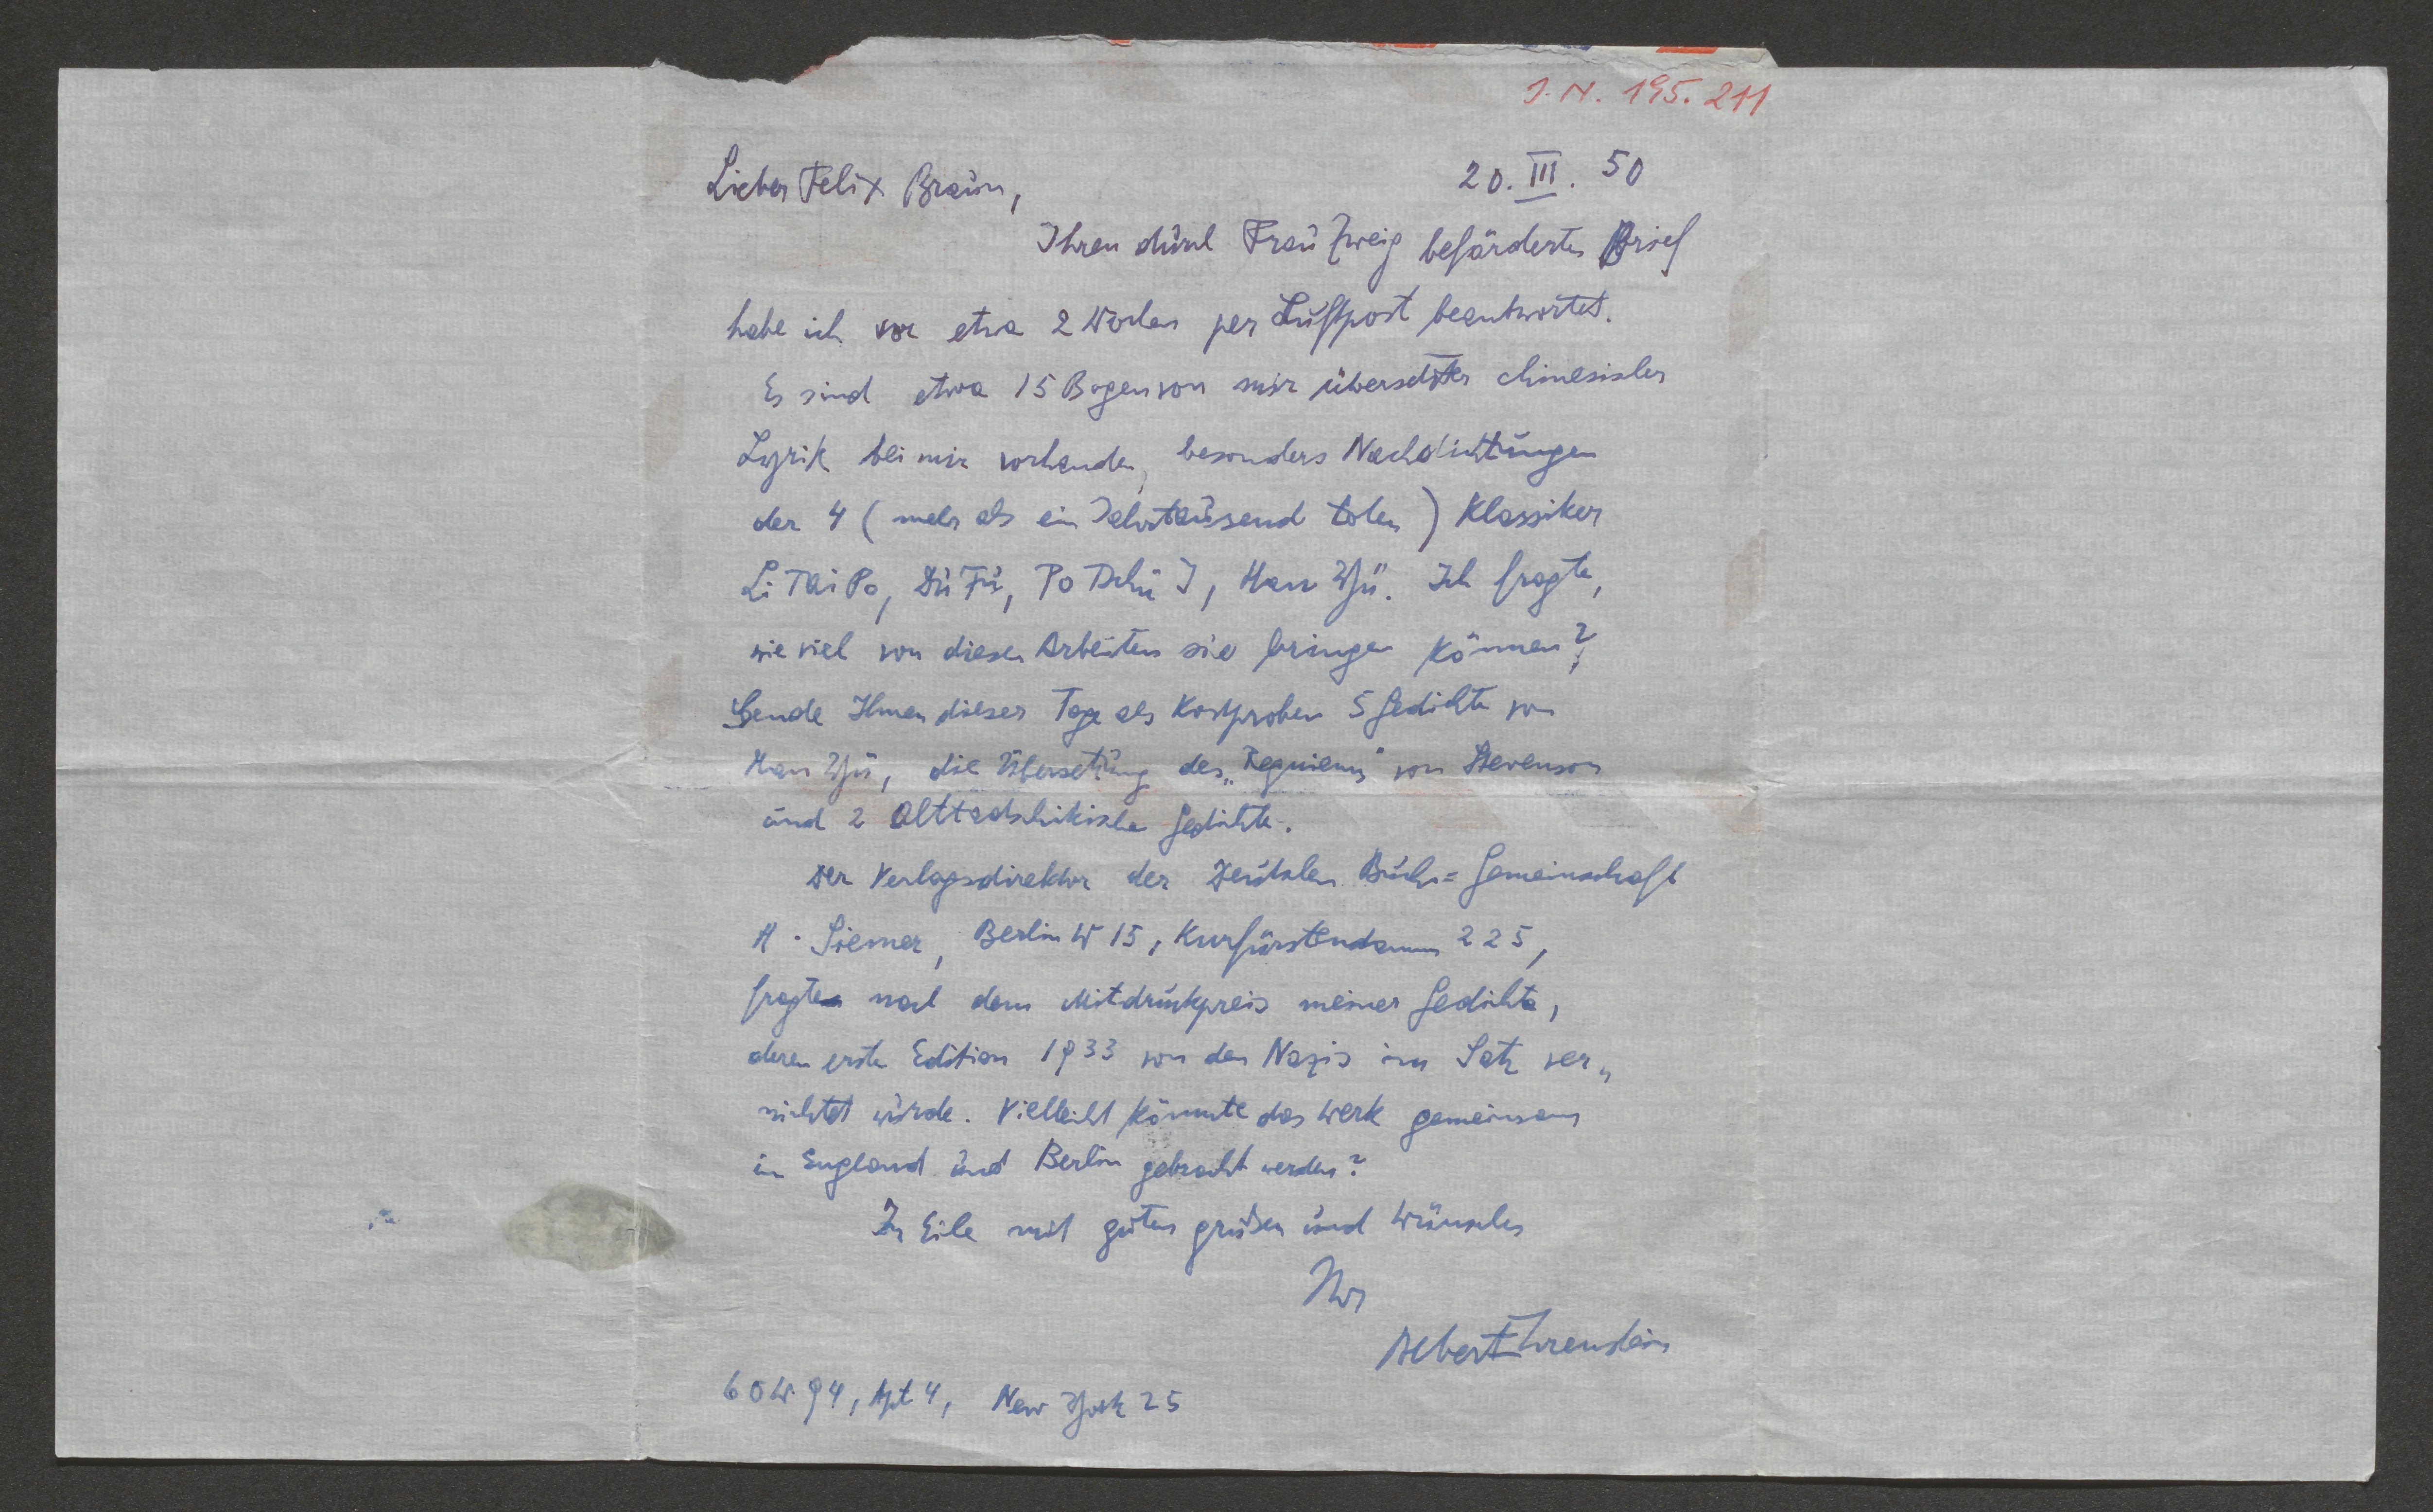 I. N. 195.211
20. III. 50
Lieber Felix Braun,
Ihren durch Frau Zweig beförderten Brief
habe ich vor etwa 2 Wochen per Luftpost beantwortet.
Es sind etwa 15 Bogen von mir übersetzter chinesischer
Lyrik bei mir vorhanden, besonders Nachdichtungen
der 4 (mehr als ein Jahrtausend toten) Klassiker
Li Tai Po, Du Fu, Po Tchü I, Han Yü. Ich fragte,
wie viel von diesen Arbeiten sie bringen können?
Sende Ihnen dieser Tage als Kostproben 5 Gedichte von
Han Yü, die Übersetzung des „Requiems" von Stevenson
und 2 Alttadschikische Gedichte.
Der Verlagsdirektor der Deutschen Buch=Gemeinschaft
A. Siemer, Berlin W 15, Kurfürstendamm 225,
fragte nach dem Mitdruckpreis meiner Gedichte,
deren erste Edition 1933 von den Nazis im Satz ver„
nichtet wurde. Vielleicht könnte das Werk gemeinsam
in England und Berlin gebracht werden?
In Eile mit guten Grüßen und Wünschen
Ihr
Albert Ehrenstein
60 W 94, Apt 4, New York 25